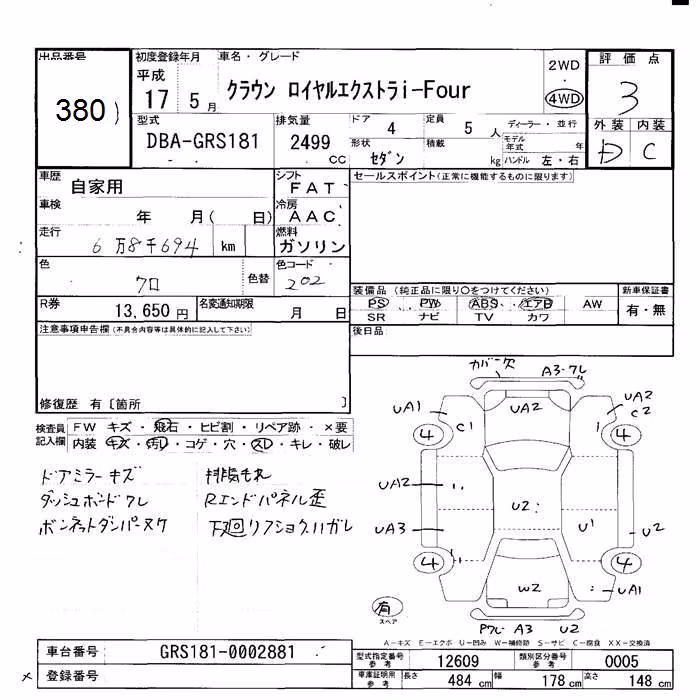 出品番号 初度登録年月 車名・グレード 評価点
380
平成 17 5月 クラウン ロイヤルエクストラi-Four 2WD 4WD 3
型式 排気量 ドア 4 定員 5人 ディーラー・並行 外装 内装
DBA-GRS181 2499 CC 形状 セダン 積載 kg モデル年式 年 ハンドル 左・右 D C
車歴 自家用 シフト FAT セールスポイント(正常に機能するものに限ります)
車検 年 月( 日) 冷房 AAC
走行 6万8千694 km 燃料 ガソリン
色 クロ 色替 色コード 202
装備品 (純正品に限り〇をつけてください) 新車保証書
PS PW ABS エアB AW 有・無
SR ナビ TV カワ
R券 13,650円 名変通知期限 月 日
後日品
注意事項申告欄(不具合内容等は具体的に記入して下さい)
修復歴 有〔箇所 〕
検査員記入欄 FW キズ・飛石・ヒビ割・リペア跡・×要
内装 キズ・汚レ・コゲ・穴・スレ・キレ・破レ
ドアミラーキズ 排気モれ
ダッシュボードワレ Rエンドパネル歪
ボンネットダンパーヌケ 下廻リフショク、ハガレ
カバー欠 A3・ワレ
UA1 UA2 UA2
C1 C2
4 4
UA2
U2
UA3 U1 U2
4 4
W2 UA1
有
スペア
PワレA3 U2
A-キズ E-エクボ U-凹み W-補修跡 S-サビ C-腐食 XX-交換済
車台番号 GRS181-0002881 型式指定番号 参考 12609 類別区分番号 参考 0005
登録番号 車庫証明用 参考 長さ 484 cm 幅 178 cm 高さ 148 cm